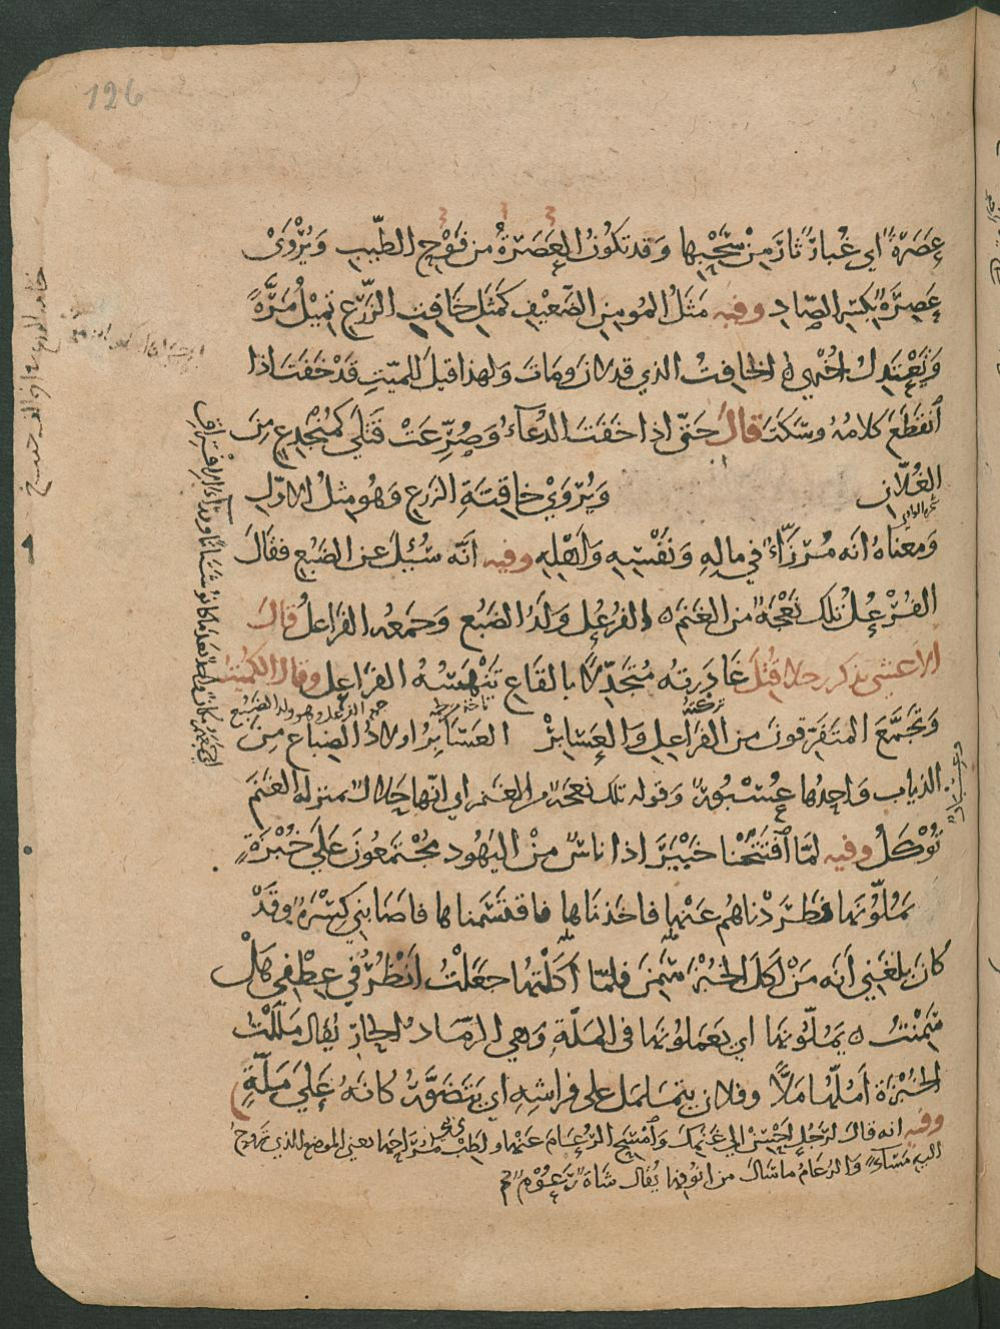 126
عَصَرَةً اي غُبارٌ ثارَ مِنْ سَحْبِها وَقد تكُونُ العَصَرَةُ من فَوْحِ الطّيب وَيُرْوَىْ
عَصِرَةً بكسر الصّادِ وفيه مَثَلُ المُومِنِ الضَعِيْفِ كمَثَل خَافِتِ الزَّرْعِ تَمِيْلُ مَرَّةً
وَتَعْتَدِلُ اخْرَي ه الخافِتُ الذي قد لانَ ومَاتَ وَلهذا قيلَ للميّتِ قَدْ خَفَتَ اذا
آنقَطَعَ كلامُهُ وسَكَتَ قالَ حَتّى اذا خَفَتَ الدُعَآءُ وَصُرِّعَتْ قَتْلَى كمُنْجَدِعٍ مِنَ
الغُلّانِ وَيُرْوَيْ خافِتَةِ الزرعِ وَهُو مثلُ الاوّلِ
وَمعناهُ انه مُرَزَّاءٌ في مالِهِ وَنَفْسِهِ وَاَهْلِهِ وفيه انّه سُئِلَ عن الضَبُعِ فقالَ
الفُرْعُلُ تلك نَعْجَةٌ من الغنَمِ ه الفرعُل وَلَدُ الضَبُع وَجَمعُه الفَرَاعلُ قالَ
الاعشى يذكر رجلا قُتِلَ غَادَرتهُ مُتَجَدِّلًا بالقَاعِ تَنْهَسُهُ الفراعِل وقال الكُمَيْت
وَتَجَمَّعَ المتَفَرِّقونَ من الفَرَاعِلِ وَالعَسَابِرْ العَسَابِرُ اولادُ الضِباعِ مِنَ
الذياب وَاحِدُها عُسْبُورَةٌ وَقوله تلك نعجة من الغَنَم اي انّها حَلالٌ بمنزله الغَنَم
تُوْكَلُ وفيه لمّا آفتَتَحْنا خَيْبَرَ اذا ناسٌ مِنْ اليَهُود مجُتْمَعُونَ عَلَى خُبْزَةٍ
يَمُلّوُنها فطَرَدْناهُم عَنْها فاخَذْناها فاقتسَمناها فاصَابَني كِسْرَةٌ وقَدْ
كانَ بلَغَنِي اَنه مَنْ اكَلَ الخُبْزَ سَمِنَ فلمّا اكَلْتُها جعَلْتُ اَنْظُرُ في عِطْفي هَلْ
سَمِنْتُ ه يَمُلّوُنها اي يعملونها في المَلّةِ وَهي الرمَادُ الحارّ يُقال مَلَلْتُ
الخُبْزَةَ اَمُلُّها مَلاًّ وفلان يتمَلمَل على فراشِهِ اي يَتَضَوَّرُ كانهُ عَلَى مَلّةٍ
وفيه انه قالَ لرَجُلٍ اَحْسِنْ الي غَنَمِكَ وَآمْسَحِ الرُعَامَ عنها واَطِبْ مُرَاحَها يعني الموضع الذي تروحُ
اليه مَسَاءً وَالرُعَامُ ما سَالَ من انُوفِها يُقَال شَاةٌ رَعُوْمٌ